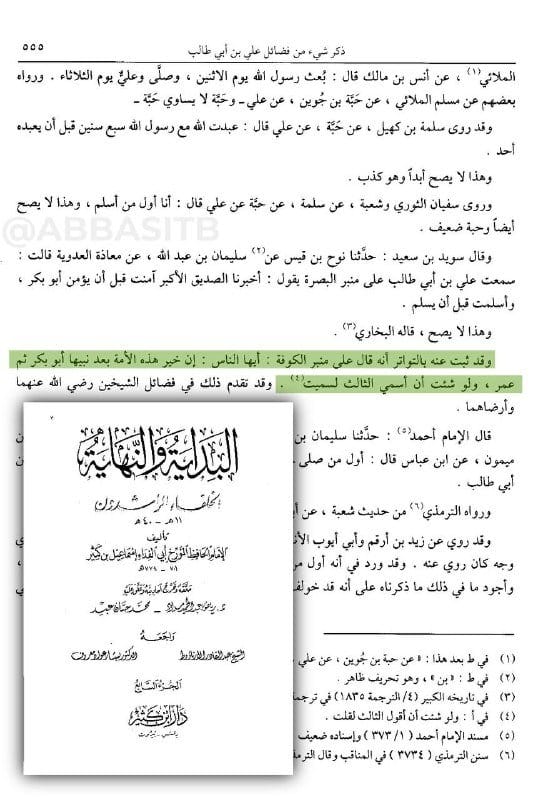 ذكر شيء من فضائل علي بن أبي طالب ٥٥٥
الملائي(١) ، عن أنس بن مالك قال : بُعث رسول الله يوم الاثنين ، وصلَّى وعليٌّ يوم الثلاثاء . ورواه
بعضهم عن مسلم الملائي ، عن حَبَّة بن جُوين ، عن علي ـ وحَبَّة لا يساوي حَبَّة ـ
وقد روى سلمة بن كهيل ، عن حَبَّة ، عن علي قال : عبدت الله مع رسول الله سبع سنين قبل أن يعبده
أحد .
وهذا لا يصح أبداً وهو كذب .
وروى سفيان الثوري وشعبة ، عن سلمة ، عن حبَّة عن علي قال : أنا أول من أسلم ، وهذا لا يصح
أيضاً وحبة ضعيف .
@ABBASITB
وقال سويد بن سعيد : حدَّثنا نوح بن قيس عن(٢) سليمان بن عبد الله ، عن معاذة العدوية قالت :
سمعت علي بن أبي طالب على منبر البصرة يقول : أخبرنا الصديق الأكبر آمنت قبل أن يؤمن أبو بكر ،
وأسلمت قبل أن يسلم .
وهذا لا يصح ، قاله البخاري(٣) .
وقد ثبت عنه بالتواتر أنه قال على منبر الكوفة : أيها الناس : إن خير هذه الأمة بعد نبيها أبو بكر ثم
عمر ، ولو شئت أن أسمي الثالث لسميت(٤) . وقد تقدم ذلك في فضائل الشيخين رضي الله عنهما
وأرضاهما .
قال الإمام أحمد(٥) : حدَّثنا سليمان بن
ميمون ، عن ابن عباس قال : أول من صلى
أبي طالب .
ورواه الترمذي(٦) من حديث شعبة ، عن أبي
وقد روي عن زيد بن أرقم وأبي أيوب الأن
وجه كان روي عنه . وقد ورد في أنه أول من
وأجود ما في ذلك ما ذكرناه على أنه قد خولف
(١) في ط بعد هذا : «عن حبة بن جُوين ، عن علي
(٢) في ط : «بن» ، وهو تحريف ظاهر .
(٣) في تاريخه الكبير (٤/ الترجمة ١٨٣٥) في ترجمة
(٤) في أ : ولو شئت أن أقول الثالث لقلت .
(٥) مسند الإمام أحمد (١/ ٣٧٣) وإسناده ضعيف
(٦) سنن الترمذي (٣٧٣٤) في المناقب وقال الترمذ
٧
البداية والنهاية
الخلفاء الراشدون
١١هـ - ٤٠هـ
تأليف
الإمام الحافظ المؤرخ أبي الفداء إسماعيل بن كثير
٧٠١ - ٧٧٤هـ
د. رياض عبد الحميد مراد - محمد حسان عبيد
راجعه
الشيخ عبد القادر الأرناؤوط الدكتور بشار عواد معروف
الجزء السابع
دار ابن كثير